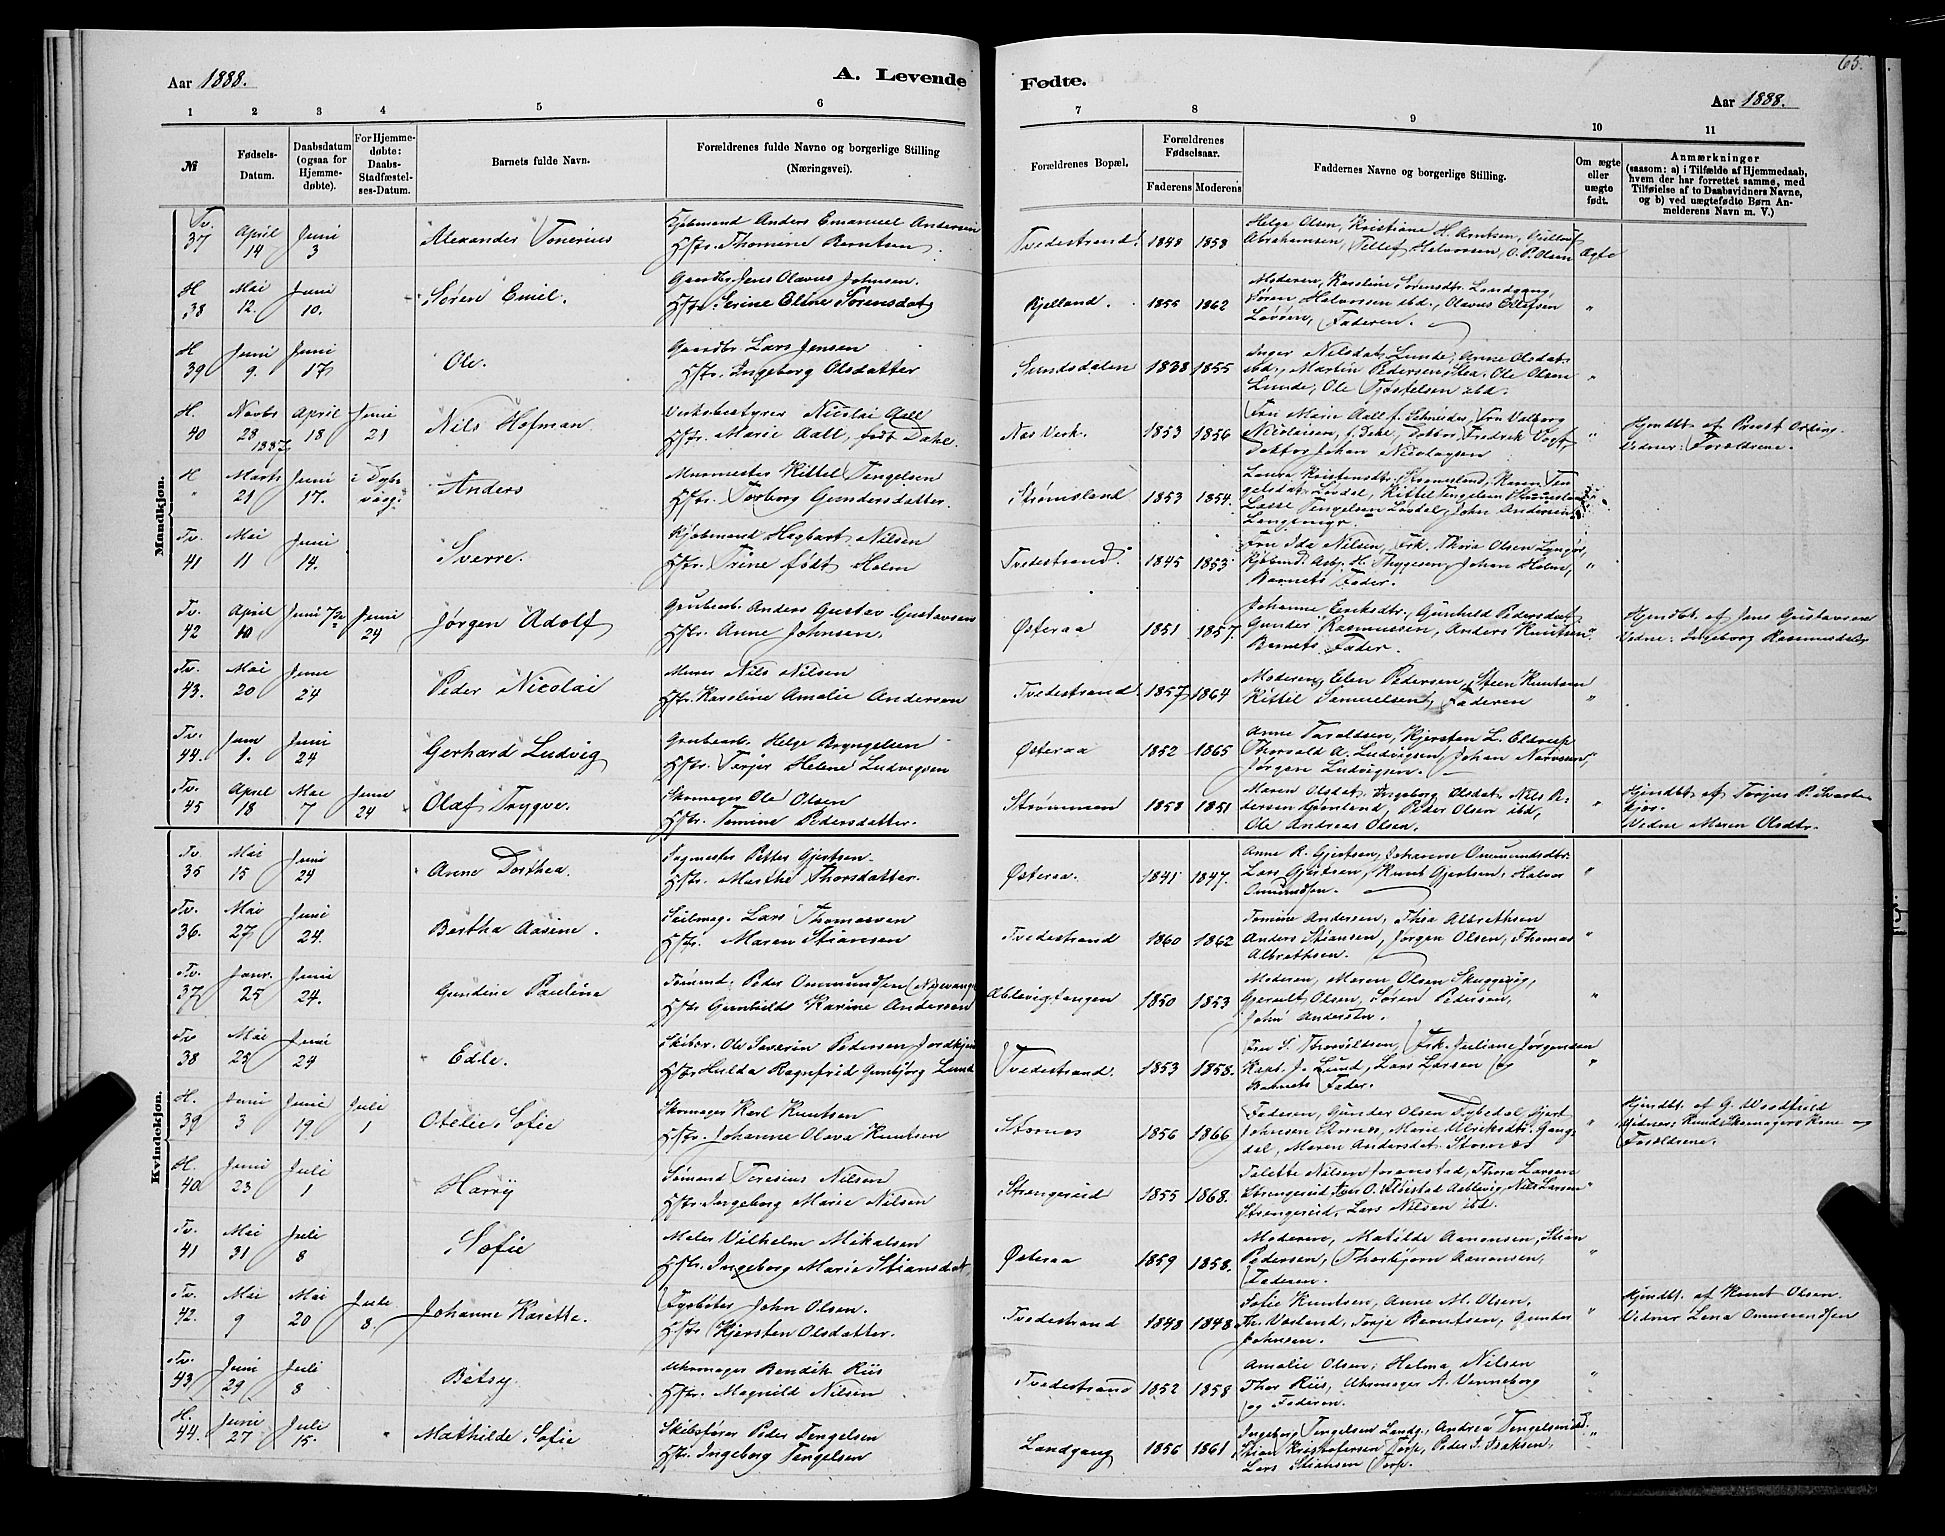 65.
Aar 1888.
A. Levende Fødte.
Aar 1888.
1 2 3 4 5 6 7 8 9 10 11
№
Fødsels-Datum.
Daabsdatum (ogsaa for Hjemmedøbte).
For Hjemmedøbte: Daabs-Stadfæstelses-Datum.
Barnets fulde Navn.
Forældrenes fulde Navne og borgerlige Stilling (Næringsvei).
Forældrenes Bopæl.
Forældrenes Fødselsaar.
Faderens Moderens
Faddernes Navne og borgerlige Stilling.
Om ægte eller uægte født.
Anmærkninger (saasom: a) i Tilfælde af Hjemmedaab, hvem der har forrettet samme, med Tilføielse af to Daabsvidners Navne, og b) ved uægtefødte Børn Anmelderens Navn m. V.)
Mandkjøn.
Tv. 37 April 14 Juni 3 Alexander Tonerius
Kjøbmand Anders Emanuel Andersen
Hstr. Thomine Berntsen.
Tvedestrand. 1848 1853
Helge Olsen, Kristiane H. Arntsen,
Abrahamsen, Tellef Halvorsen, O. P. Olsen Ægte
H 38 Mai 12. Juni 10. Søren Emil.
Gaardbr. Jens Olavus Johnsen.
Hstr. Serine Eline Sørensdat
Kjelland. 1855 1862
Moderen, Karoline Sørensdtr. Landgang
Søren Halvorsen ibd., Olavus Ellefsen
Løvøen, Faderen. "
H 39 Juni 9. Juni 17 Ole.
Gaardbr. Lars Jensen
Hstr. Ingeborg Olsdatter
Sundsdalen 1828 1855
Inger Nilsdat. Lunde, Anne Olsdat.
ibd., Martin Pedersen, Ole Olsen
Lunde, Ole Tostelsen ibd. "
H. 40 Novbr 28 1887 April 18 Juni 21 Nils Hofman
Verksbestyrer Nicolai Aall
Hstr. Marie Aall, født Dahl.
Nas Verk. 1853 1856
Fru Marie Aall f. Schnider, Fru Valborg
Nicolaisen, f. Dahl, Doktor Fredrik Vogt,
Doktor Johan Nicolaysen "
Hjmdbt. af Prest
Vidner: Forældrene.
H " Marts 21 Juni 17. i Dybvaag. Anders
Murmester Kittel Tengelsen
Hstr. Torborg Gundersdatter.
Strømsland 1853 1854.
Laura Kristensdtr. Strømsland, Karen Tengelsdat. Løvdal, Kittel Tengelsen
Lasse Tengelsen Løvdal, John Andersen
Langmyr.
Tv. 41 Mai 11 Juni 14. Sverre.
Kjøbmand Hagbart Nilsen
Hstr. Trine født Holm
Tvedestrand. 1845 1853
Fru Ida Nilsen, Frk. Thora Olsen Lyngør,
Kjøbmd. Asbj. H. Thygesen, Johan Holm,
Barnets Fader. "
Tv. 42 April 10 Juni Juni 24 Jørgen Adolf
Grubearb. Anders Gustav Gustavsen
Hstr. Anne Johnsen.
Østeraa 1851 1857.
Johanne Eriksdtr., Gunhild Pedersdat
Gunder Rasmussen, Anders Knutsen
Barnets Fader. "
Hjmdbt. af Jens Gustavsen
Vidne: Ingeborg Rasmusdat.
Tv. 43. Mai 20 Juni 24 Peder Nicolai
Murer Nils Nilsen
Hstr. Karoline Amalie Andersen
Tvedestrand. 1857 1864
Moderen, Elen Pedersen, Steen Knutsen
Kittel Samuelsen, Faderen "
Tv. 44. Juni 1. Juni 24 Gerhard Ludvig
Grubearb. Helge Bryngelsen
Hstr. Terjer Helene Ludvigsen
Østeraa 1852 1865
Anne Taraldsen, Kjersten L.
Thorvald A. Ludvigsen, Johan
Jørgen Ludvigsen. "
Tv. 45 April 18 Mai 7 Juni 24 Olaf Trygve.
Skomager Ole Olsen
Hstr. Tomine Pedersdatter.
Strømmen 1853 1851
Maren Olsdat. Ingeborg Olsdat. Nils Pedersen, Peder Olsen ibd,
Ole Andreas Olsen. "
Hjmdbt. af Terjus P.
Vidne Maren Olsdtr.
Kvindekjøn.
Tv. 35 Mai 15 Juni 24 Anne Dorthea.
Sagmester Petter Gjertsen.
Hstr. Marthe Thorsdatter.
Østeraa. 1841 1847.
Anne R. Gjertsen, Johanne Omundsdtr.
Lars Gjertsen, Knut Gjertsen, Halvor
Omundsen. "
Tv. 36. Mai 27 Juni 24. Bertha Aasine.
Seilmag. Lars Thomassen
Hstr. Maren Stiansen
Tvedestrand 1860 1862
Tomine Andersen, Thea Albrethsen
Anders Stiansen, Jørgen Olsen, Thomas
Albrethsen.
Tv. 37 Janr. 25 Juni 24. Gundine Pauline
Tømmd. Peder Ommundsen
Hstr Gunhilds Karine Andersen
Ablevigtangen 1850 1853
Moderen, Maren Olsen Skuggevig,
Gjerult Olsen, Søren Pedersen,
John Andersen. "
Tv 38 Mai 25 Juni 24 Edle.
Skibsr. Ole Severin Pedersen
Hstr Hulda Ragnfrid Gunbjørg Lund
Tvedestrand. 1853 1858.
Fru S. Thorvildsen, Frk. Juliane Jørgensen
Kapt. J. Lund, Lars Larsen og
Barnets Fader. "
H. 39 Juni 3 Juni 19 Juli 1 Otelie Sofie
Skomager Karl Knutsen
Hstr. Johanne Olava Knutsen
Stornes 1856 1866
Faderen, Gunder Olsen Dybedal, Gjert
Johnsen, Marie Ulriksdtr. Gangdal, Maren Andersdat. Stornæs "
Hjmdbt. af G.
Vidner: Knud Skomagers Kone og
Forældrene.
H. 40 Juni 23 Juli 1 Harry
Sømand Teresius Nilsen
Hstr. Ingeborg Marie Nilsen
Strengereid 1855 1868.
Talette Nilsen Joranstad, Thora Larsen
Strengereid Iver O. Fløistad Aablevig, Nils Larsen
Strengereid, Lars Nilsen ibd. "
Tv. 41 Mai 31 Juli 8 Sofie
Maler Vilhelm Mikalsen
Hstr. Ingeborg Marie Stiansdat.
Østeraa 1859 1858.
Moderen, Matilde Aanonsen, Stian
Pedersen, Thorbjørn Aanonsen,
Faderen. "
Tv. 42. Mai 9 Mai 20 Juli 8. Johanne Karette.
Fyrbøter John Olsen.
Hstr Kjersten Olsdatter.
Tvedestrand 1848 1848
Sofie Knutsen, Anne M. Olsen,
Th. Vasland, Terje Berntsen, Gunder
Johnsen. "
Hjmdbt. af Knut Olsen.
Vidner Lena Ommundsen
Tv. 43 Juni 29 Juli 8 Betsy.
Uhrmager Bendik Riis
Hstr. Magnild Nilsen
Tvedestrand 1852 1858
Amalie Olsen, Helma Nilsen
Thor Riis, Uhrmager A. Venneborg
og Faderen. "
H. 44. Juni 27 Juli 15. " Mathilde Sofie
Skibsfører Peder Tengelsen
Hstr. Ingeborg Tengelsen
Landgang 1856 1861
Ingeborg Tengelsen Landg., Andrea Tengelsen ibd.
Stian Kristofersen Torp, Peder I. Isaksen,
Lars Stiansen Torp. "